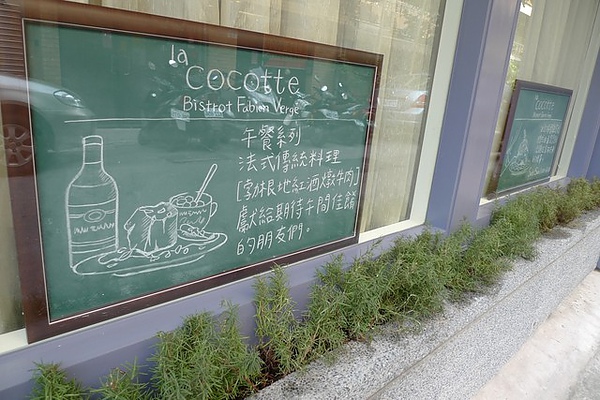 la
Cocotte
Bistrot Fabien Vergé
午餐系列
法式傳統料理
[勃根地紅酒燉牛肉]
獻給期待午間佳餚
的朋友們。
la
Cocotte